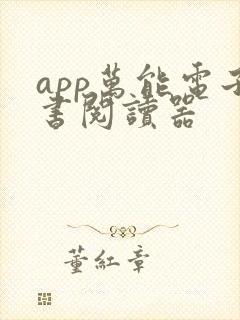 app萬能電子
書閱讀器
董紅章